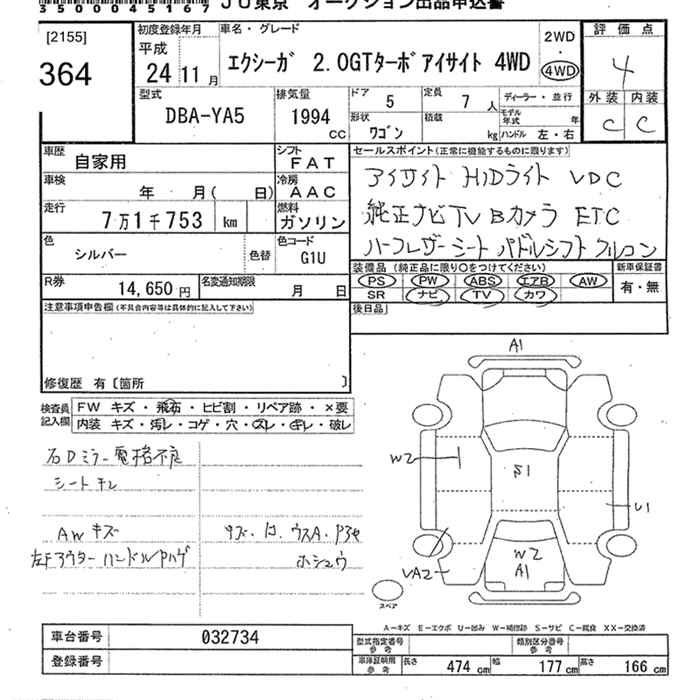 35000045107 JU東京 オークション出品申込書
[2155]
364
初度登録年月
平成
24 11 月
車名・グレード
エクシーガ 2.0GTターボアイサイト 4WD
2WD
・
4WD
評価点
4
外装 内装
C C
型式
DBA-YA5
排気量
1994
CC
ドア 5
定員 7 人
形状 ワゴン
積載 kg
ディーラー・並行
モデル年式 年
ハンドル 左・右
車歴 自家用
シフト FAT
車検 年 月( 日)
冷房 AAC
走行 7万1千753 km
燃料 ガソリン
色 シルバー
色替
色コード G1U
R券 14,650円
名変通知期限 月 日
セールスポイント(正常に機能するものに限ります)
アイサイト HIDライト VDC
純正ナビTV Bカメラ ETC
ハーフレザーシート パドルシフト クルコン
装備品(純正品に限り○をつけてください)
PS PW ABS エアB AW
SR ナビ TV カワ
新車保証書
有・無
後日品
注意事項申告欄(不具合内容等は具体的に記入して下さい)
修復歴 有〔箇所 〕
検査員記入欄
FW キズ・飛石・ヒビ割・リペア跡・×要
内装 キズ・汚レ・コゲ・穴・スレ・キレ・破レ
右Dミラー電格不良
シートキレ
AWキズ
左Fアウターハンドル
ホシュウ
A1
W2
S1
U1
W2
A1
VA2
スペア
A－キズ E－エクボ U－凹み W－補修跡 S－サビ C－腐食 XX－交換済
車台番号 032734
登録番号
型式指定番号 参考
類別区分番号 参考
車庫証明用 参考
長さ 474 cm
幅 177 cm
高さ 166 cm